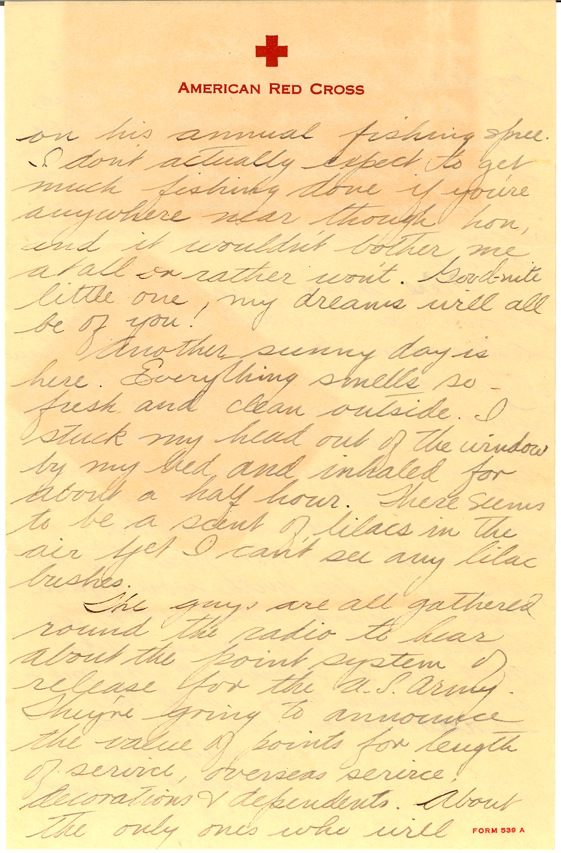 AMERICAN RED CROSS
on his annual fishing spree.
I dont actually expect to get
much fishing done if you're
anywhere near though hon,
and it wouldn't bother me
atall or rather wont. Good-nite
little one, my dreams will all
be of you!
Another sunny day is
here. Everything smells so
fresh and clean outside. I
stuck my head out of the window
by my bed and inhaled for
about a half hour. There seems
to be a scent of lilacs in the
air yet I cant see any lilac
bushes.
The guys are all gathered
round the radio to hear
about the point system of
release for the U.S. Army.
They're going to announce
the value of points for length
of service, overseas service,
decorations & dependents. About
the only ones who will
FORM 539 A